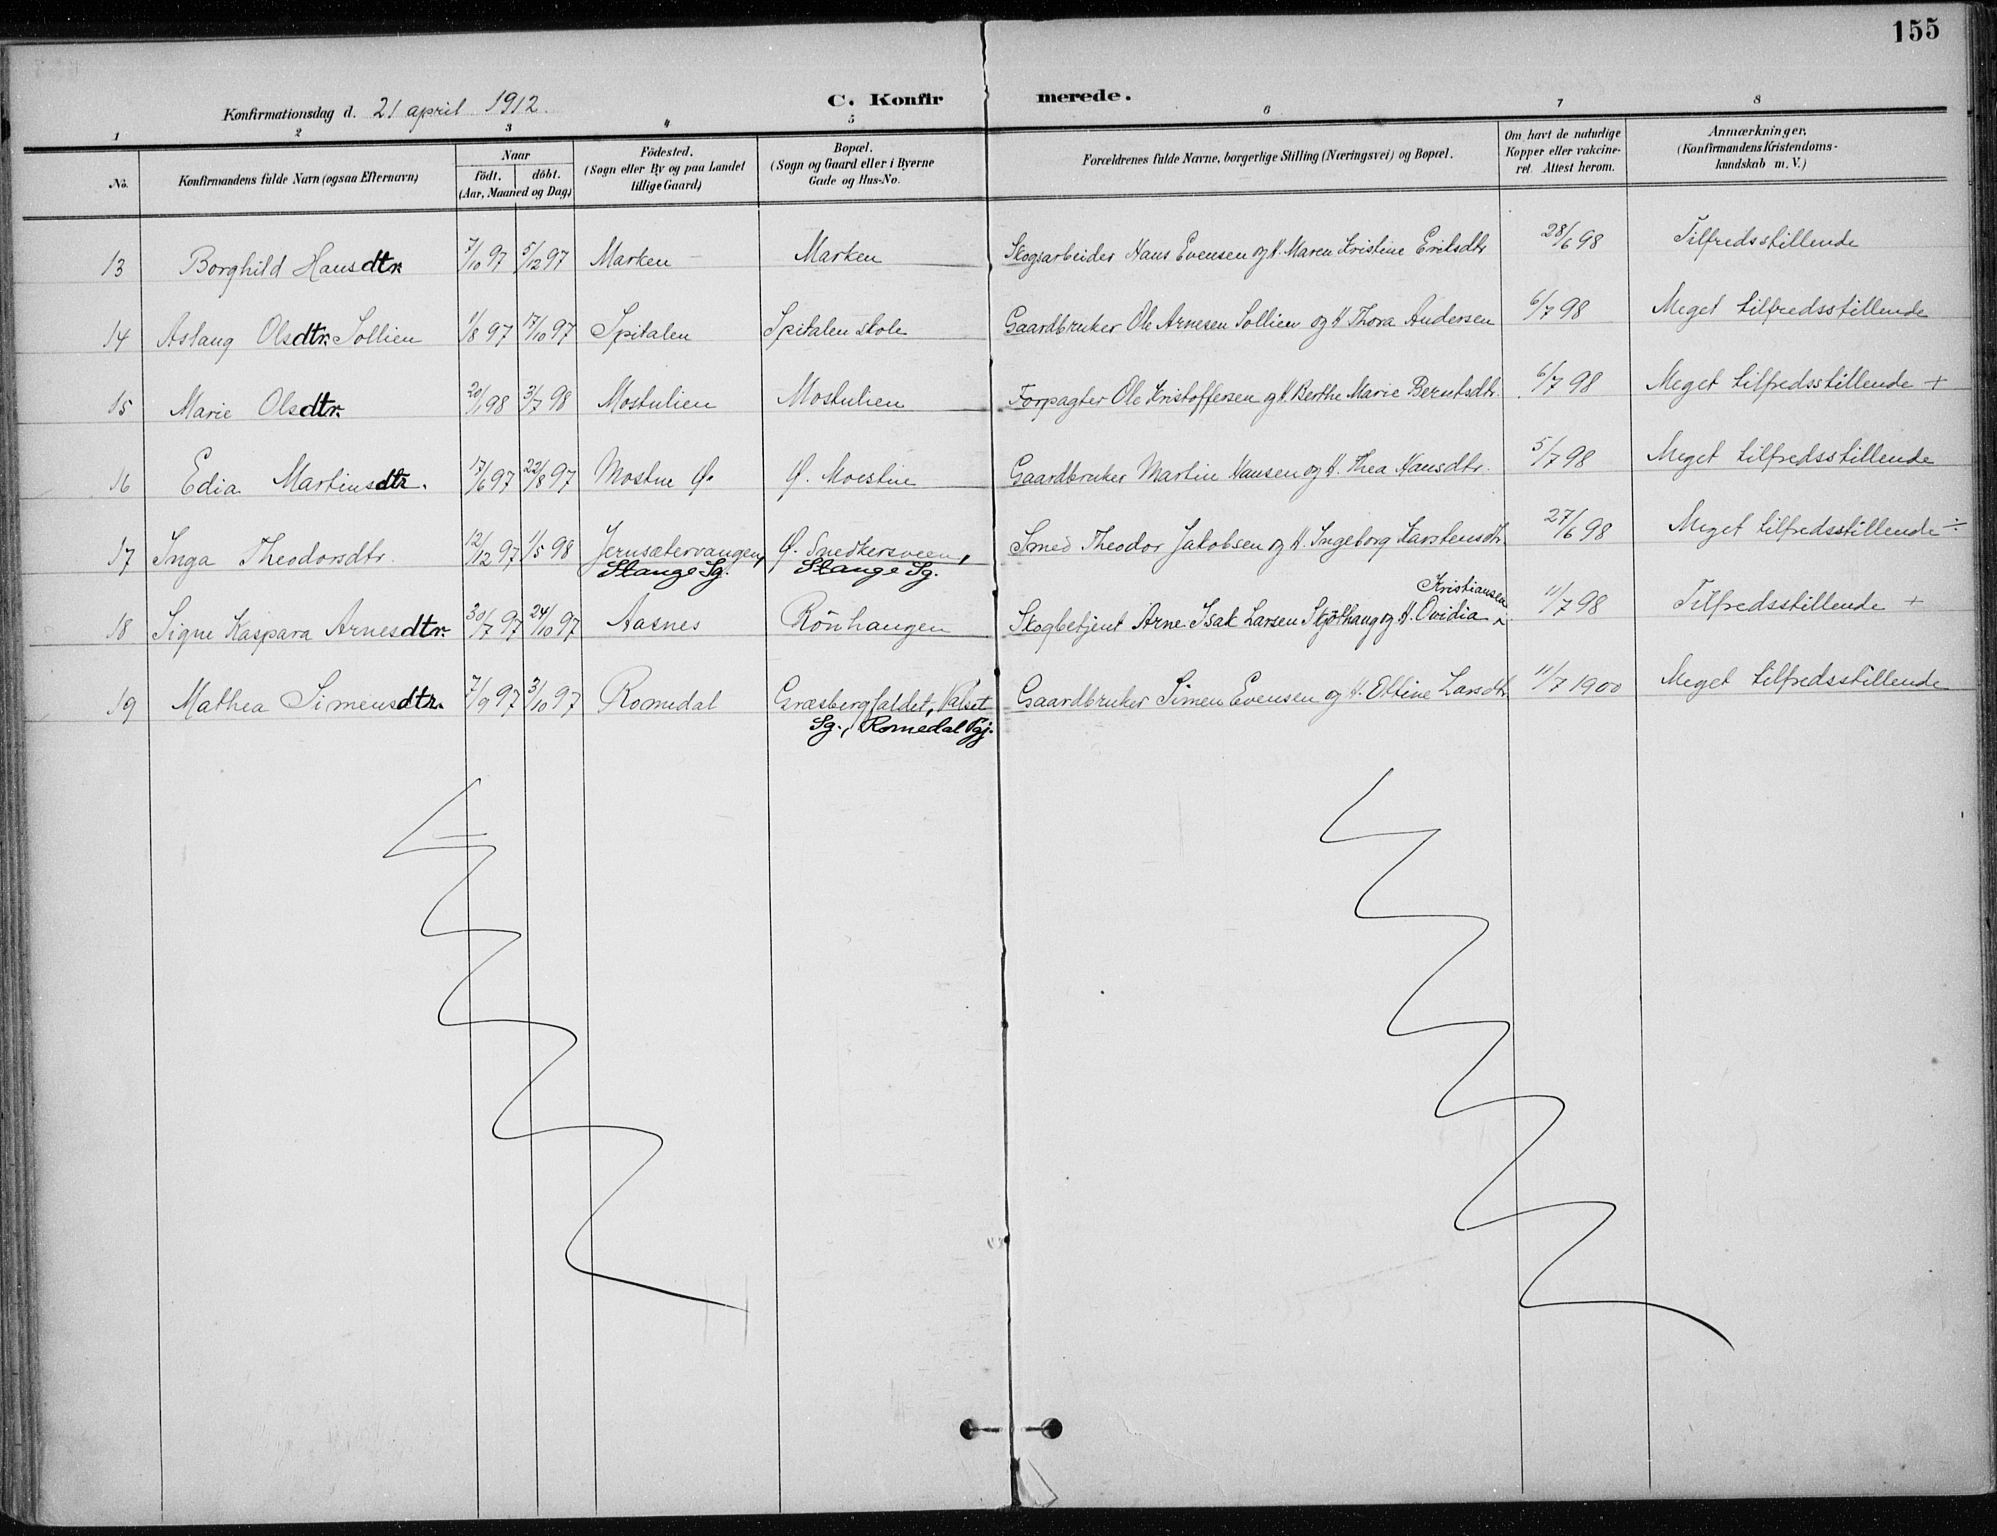 155
Konfirmationsdag d. 21 april 1912. C. Konfirmerede.
1 2 3 4 5 6 7 8
No. Konfirmandens fulde Navn (ogsaa Efternavn) Naar födt. döbt. (Aar, Maaned og Dag) Födested. (Sogn eller By og paa Landet tillige Gaard) Bopæl. (Sogn og Gaard eller i Byerne Gade og Hus-No. Forældrenes fulde Navne, borgerlige Stilling (Næringsvei) og Bopæl. Om havt de naturlige Kopper eller vakcineret. Attest herom. Anmærkninger. (Konfirmandens Kristendomskundskab m. V.)
13 Borghild Hansdtr. 7/10 97 5/12 97 Marken Marken Skogsarbeider Hans Evensen og H. Maren Kristine Eriksdtr 28/6 98 Tilfredsstillende
14 Aslaug Olsdtr. Sollien 1/8 97 17/10 97 Spitalen Spitalen skole Gaardbruker Ole Arnesen Sollien og H Thora Andersen 6/7 98 Meget tilfredsstillende
15 Marie Olsdtr. 20/1 98 3/7 98 Mostulien Mostulien Forpagter Ole Kristoffersen og H. Berthe Marie Berntsdtr. 6/7 98 Meget tilfredsstillende +
16 Edia Martinsdtr. 17/6 97 22/8 97 Mostue Ø. Ø. Moestue Gaardbruker Martin Hansen og H. Thea Hansdtr. 5/7 98 Meget tilfredsstillende
17 Inga Theodorsdtr. 12/12 97 1/5 98 Jernsætervangen, Ø. Snedkersveen, Smed Theodor Jakobsen og H. Ingeborg Karstensdtr. 27/6 98 Meget tilfredsstillende ÷
Stange Sg. Stange Sg.
Kristiansen
18 Signe Kaspara Arnesdtr. 30/7 97 24/10 97 Aasnes Rönhaugen Skogbetjent Arne Isak Larsen Skjöthaug og H. Ovidia 11/7 98 Tilfredsstillende +
19 Mathea Simensdtr. 7/9 97 3/10 97 Romedal Græsbergfaldet, Valset Gaardbruker Simen Evensen og H. Eltine Larsdtr 11/7 1900 Meget tilfredsstillende
Sg., Romedal Pgj.